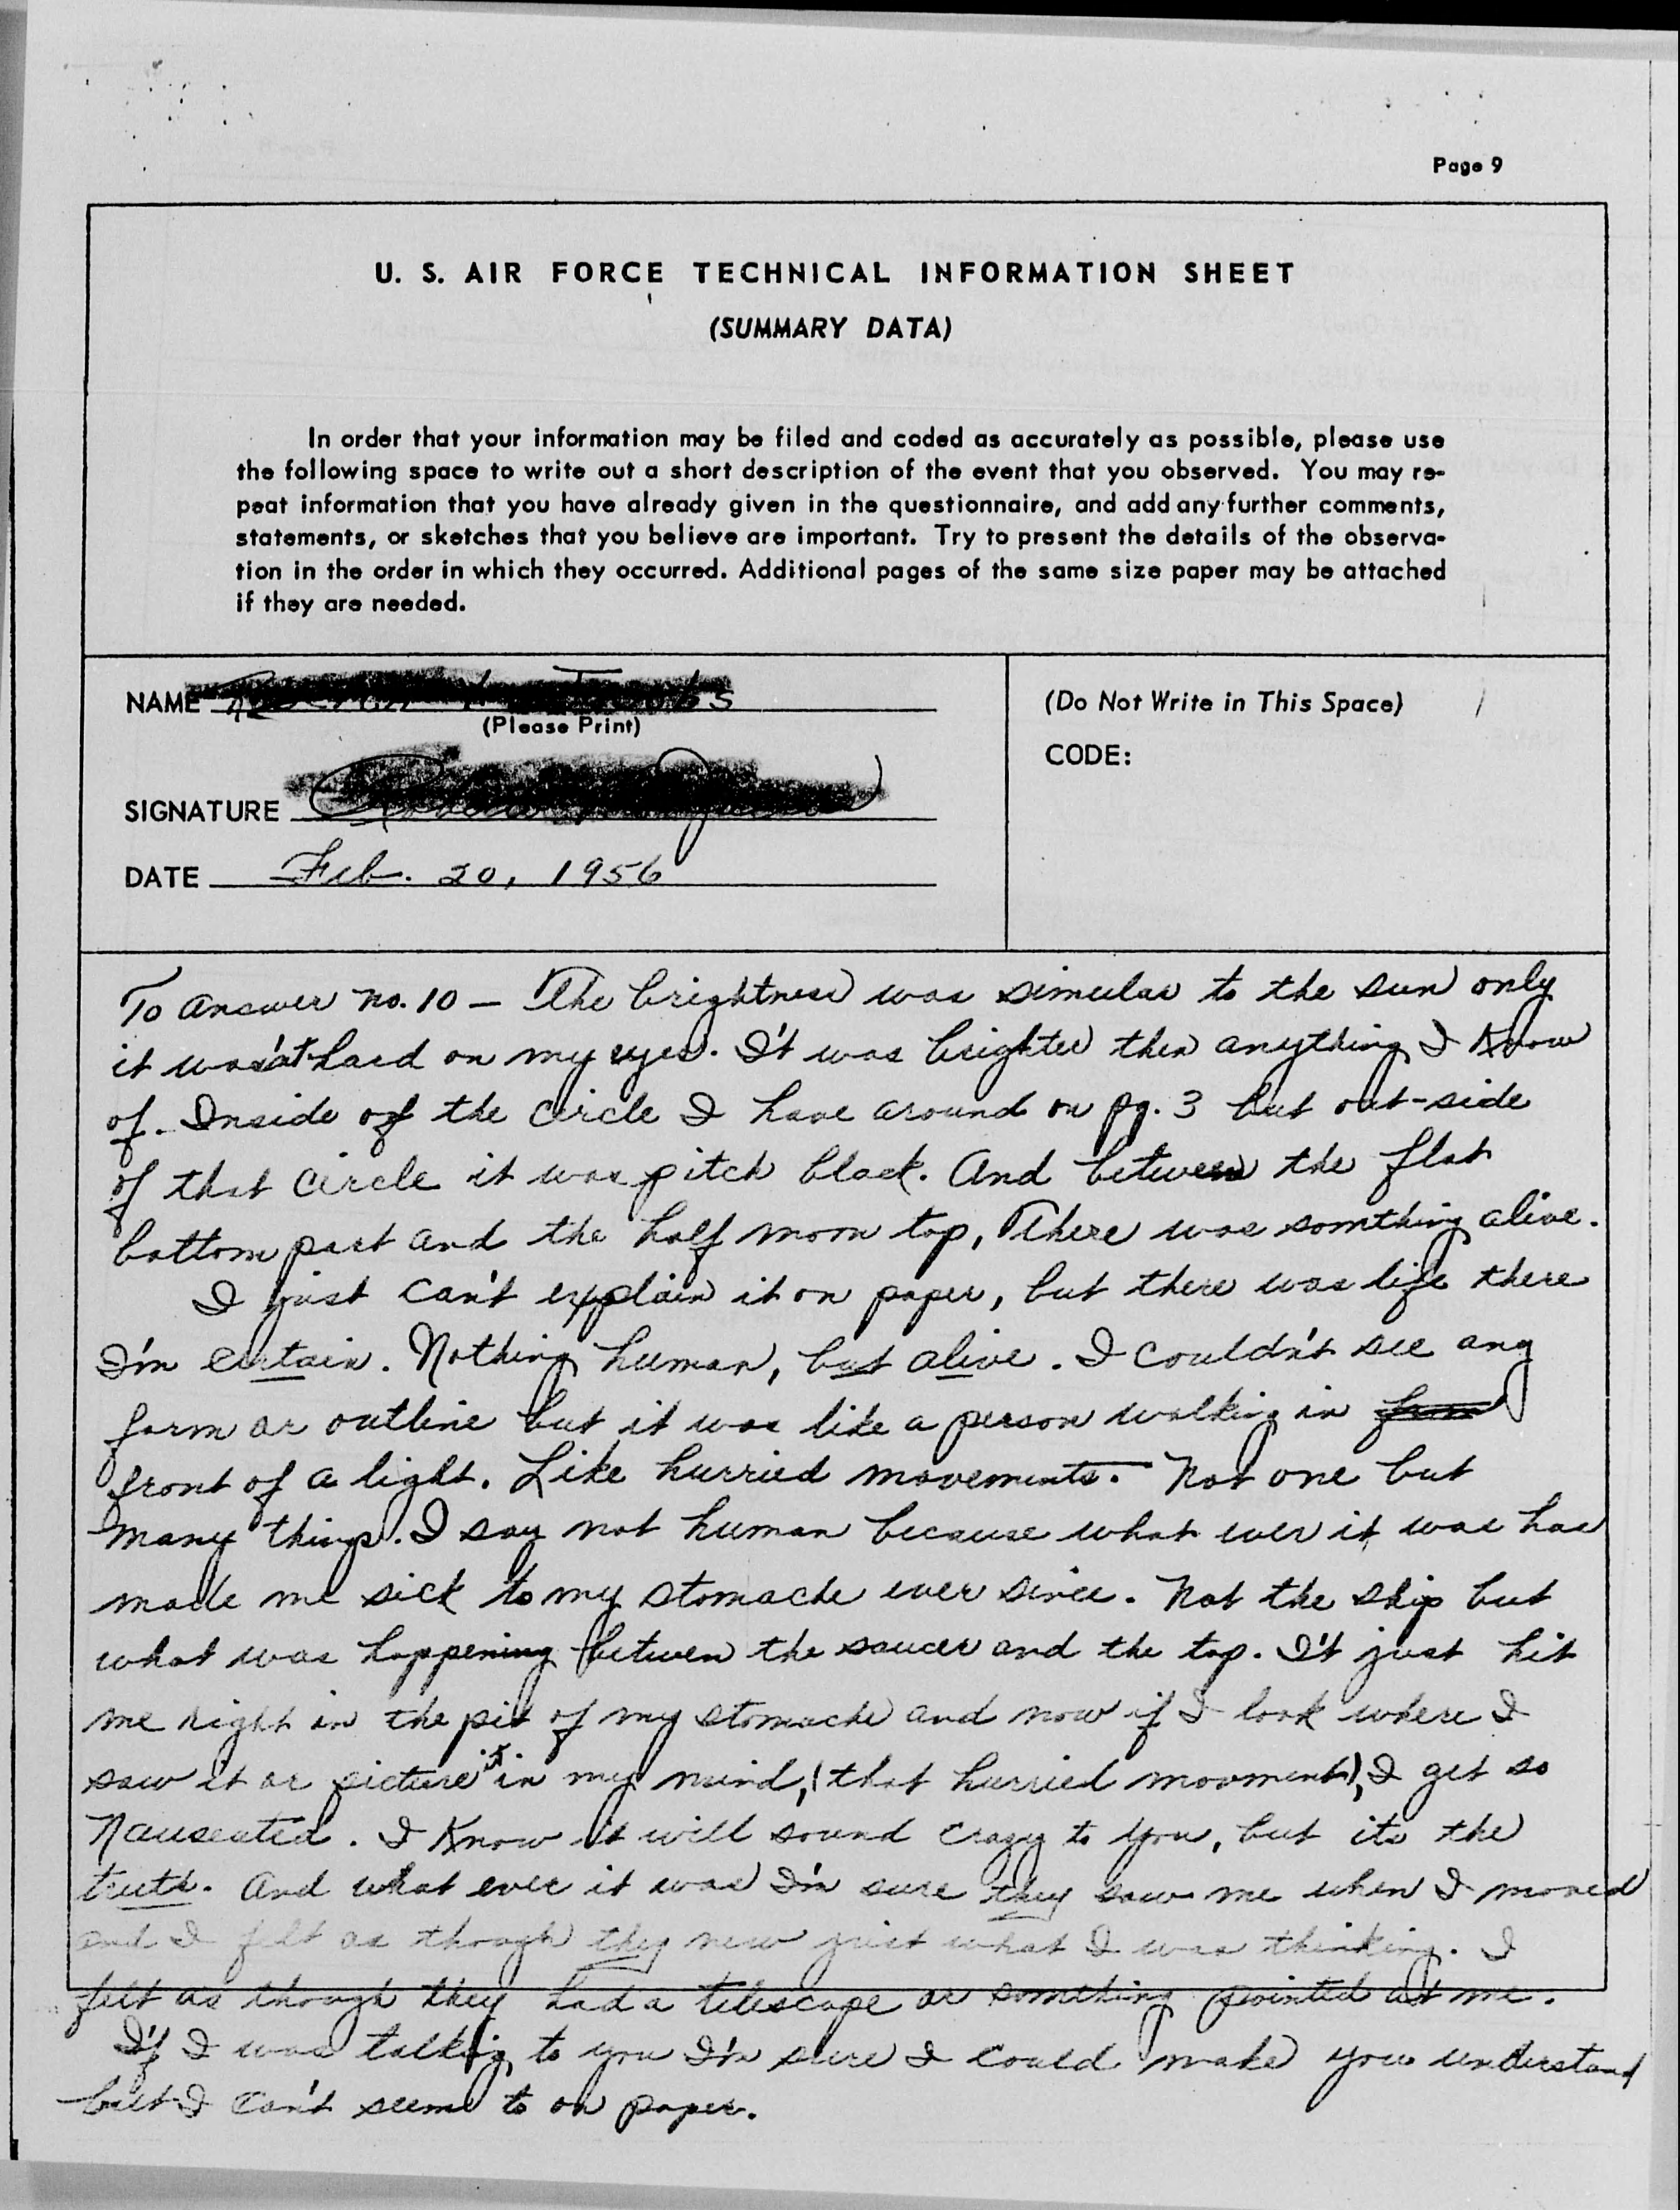 Page 9
U. S. AIR FORCE TECHNICAL INFORMATION SHEET
(SUMMARY DATA)
In order that your information may be filed and coded as accurately as possible, please use
the following space to write out a short description of the event that you observed. You may re-
peat information that you have already given in the questionnaire, and add any further comments,
statements, or sketches that you believe are important. Try to present the details of the observa-
tion in the order in which they occurred. Additional pages of the same size paper may be attached
if they are needed.
NAME
(Please Print)
SIGNATURE
DATE Feb. 20, 1956
(Do Not Write in This Space)
CODE:
To answer no. 10 — The brightness was simular to the sun only
it was'nt hard on my eyes. I't was brighter then anything I Know
of. Inside of the circle I have around on pg. 3 but out-side
of that circle it was pitch black. And between the flat
bottom part and the half moon top, There was somthing alive.
I just can't explain it on paper, but there was life there
I'm certain. Nothing human, but alive. I couldn't see any
form or outline but it was like a person walking in
front of a light. Like hurried movements. Not one but
many things. I say not human because what ever it was has
made me sick to my stomache ever since. Not the ship but
what was happening betwen the saucer and the top. I't just hit
me right in the pit of my stomache and now if I look where I
saw it or picture it in my mind, (that hurried movment), I get so
Nauseated. I Know it will sound crazy to you, but its the
truth. And what ever it was I'm sure they saw me when I moved
and I felt as though they new just what I was thinking. I
felt as though they had a telescope or something pointed at me.
I'f I was talking to you I'm sure I could make you understand
but I can't seem to on paper.